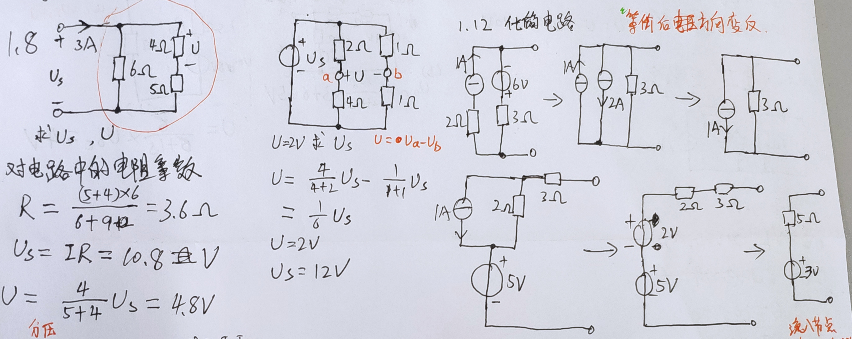 1.8
+ 3A
4Ω + U -
6Ω
5Ω
Us
求 Us , U
对电路中的电阻等效
R = (5+4)×6 / 6+9 = 3.6Ω
Us = IR = 10.8 V
U = 4 / 5+4 Us = 4.8V
分压
Us 2Ω 1Ω
a + U - b
4Ω 1Ω
U=2V 求 Us U=Ua-Ub
U = 4 / 4+2 Us - 1 / 1+1 Us
= 1 / 6 Us
U=2V
Us=12V
1.12 化简电路 等价后电压方向变反
1A + 6V 2Ω 3Ω
1A 2A 3Ω
1A 3Ω
1A 2Ω 3Ω + 5V -
2Ω 3Ω + 2V - + 5V -
5Ω + 3V -
流入节点